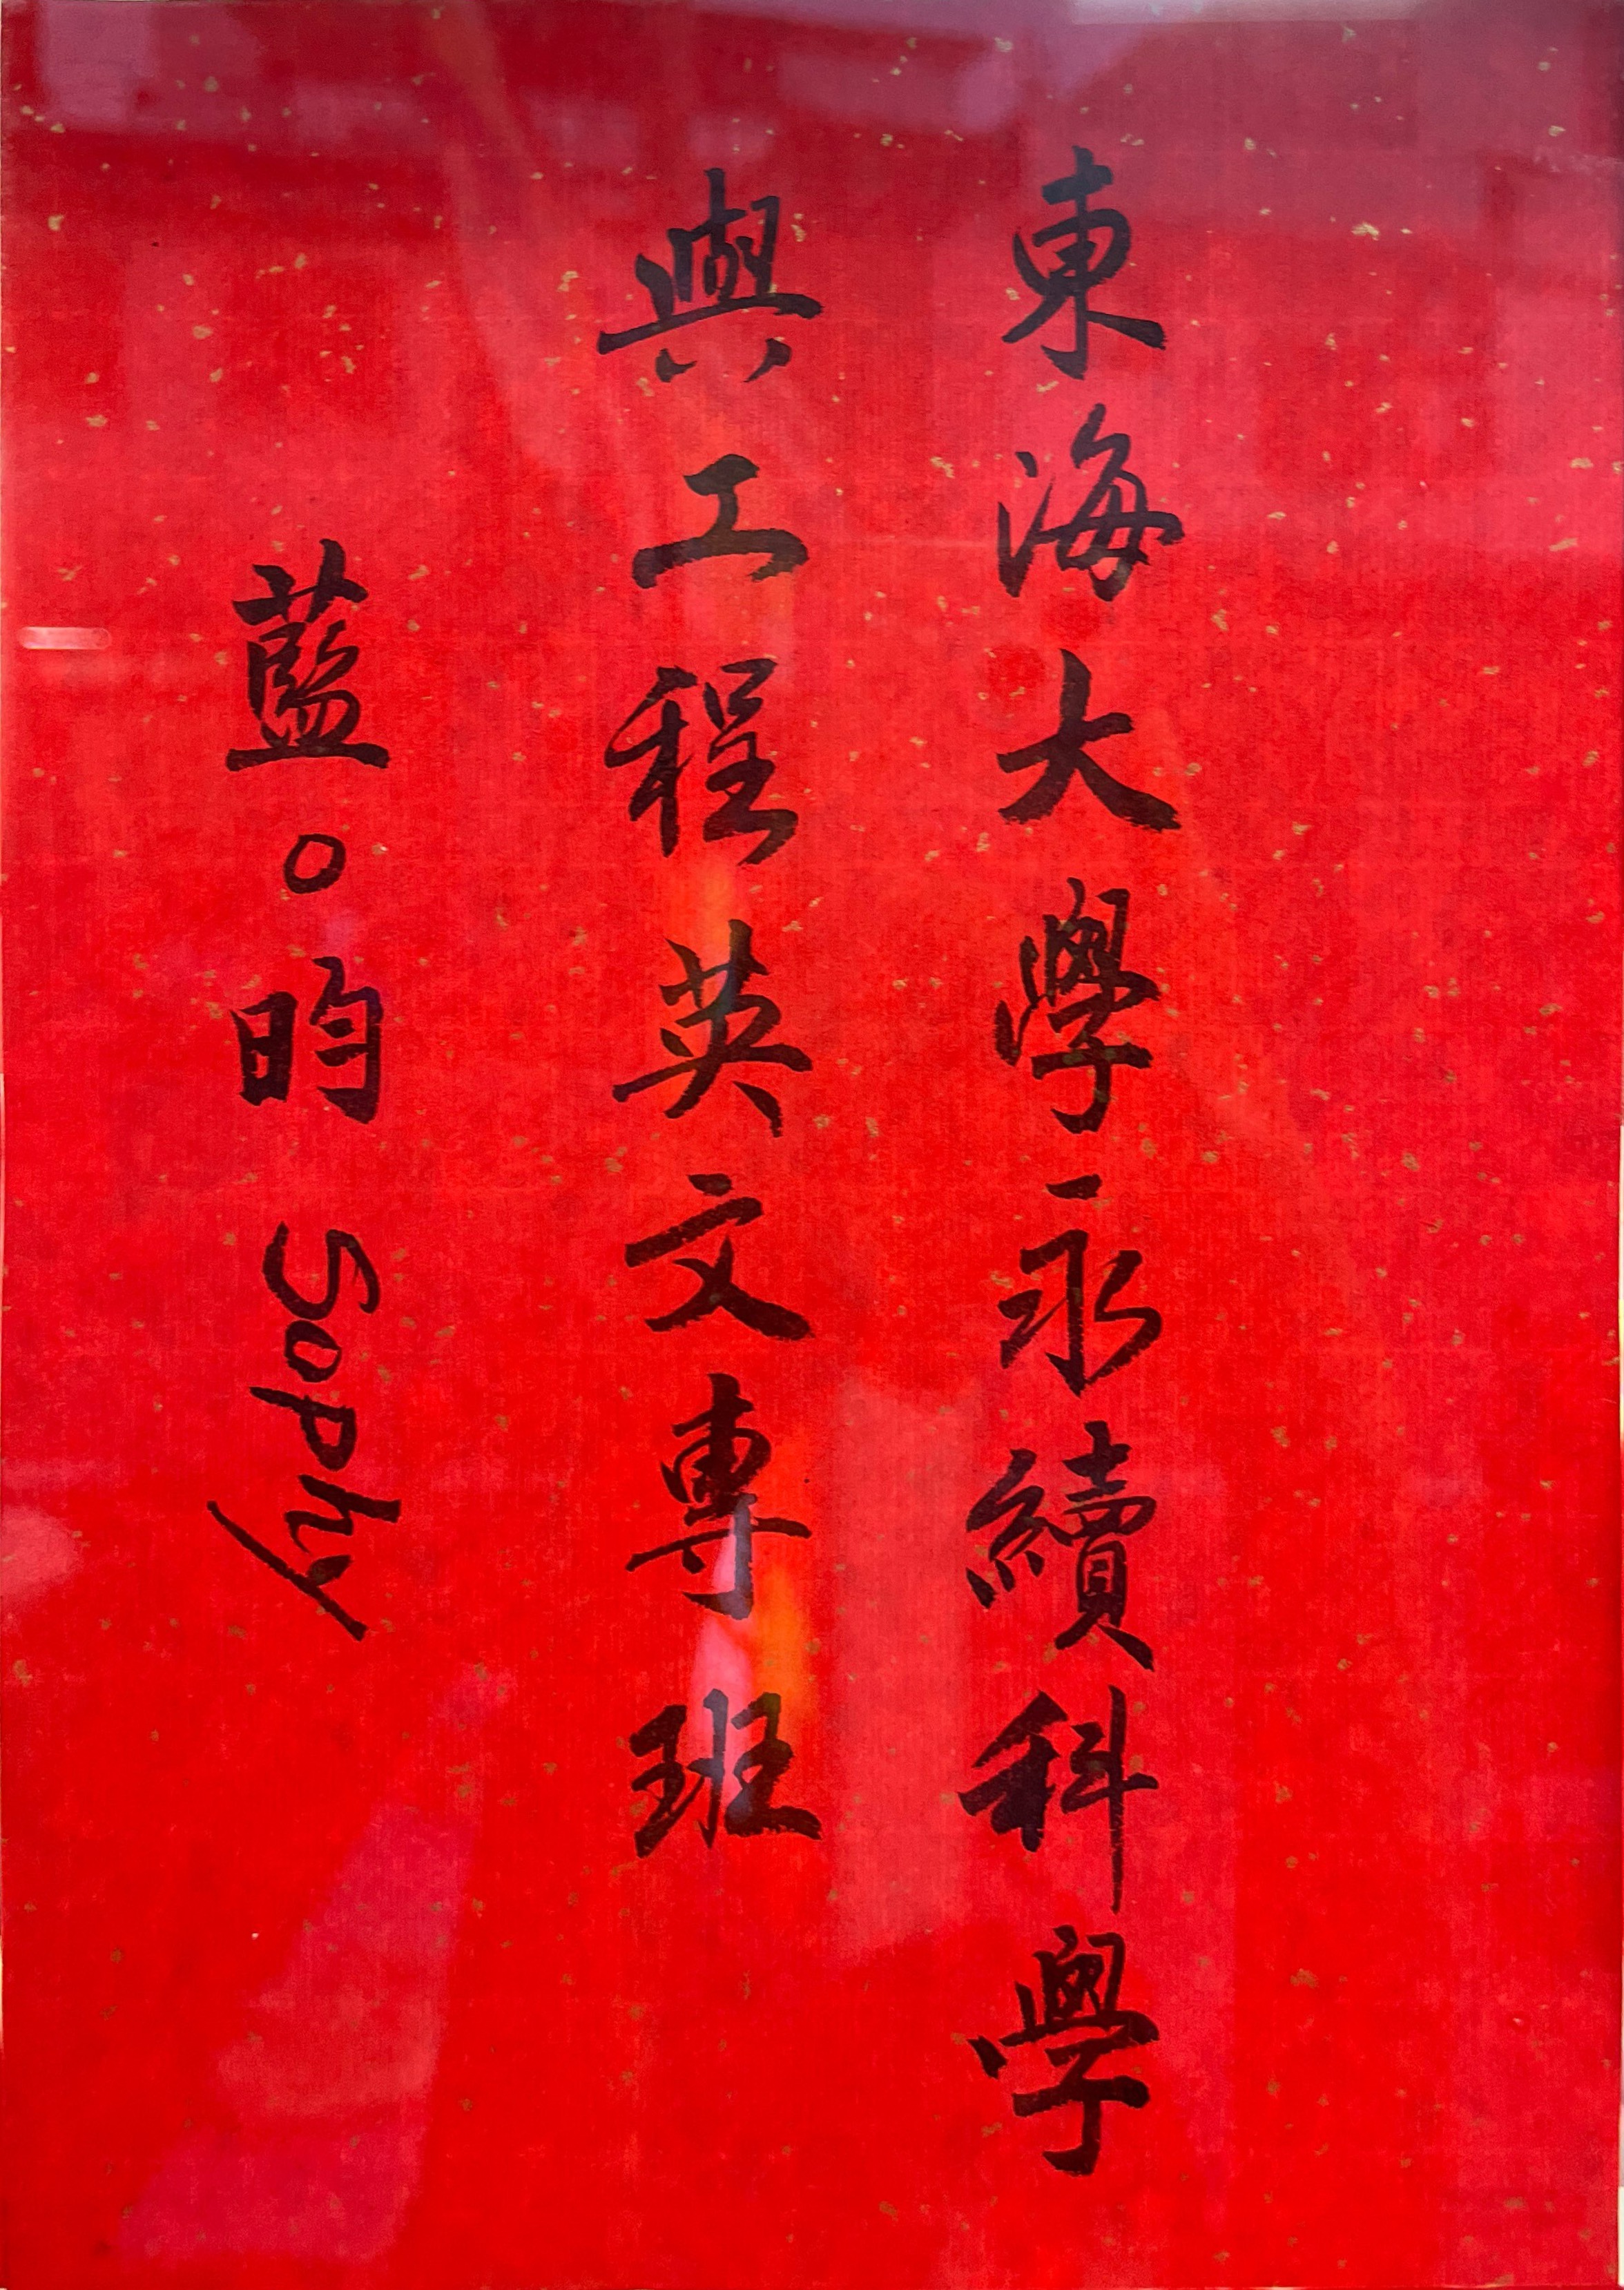 東海大學永續科學
與工程英文專班
藍○昀 Sophy